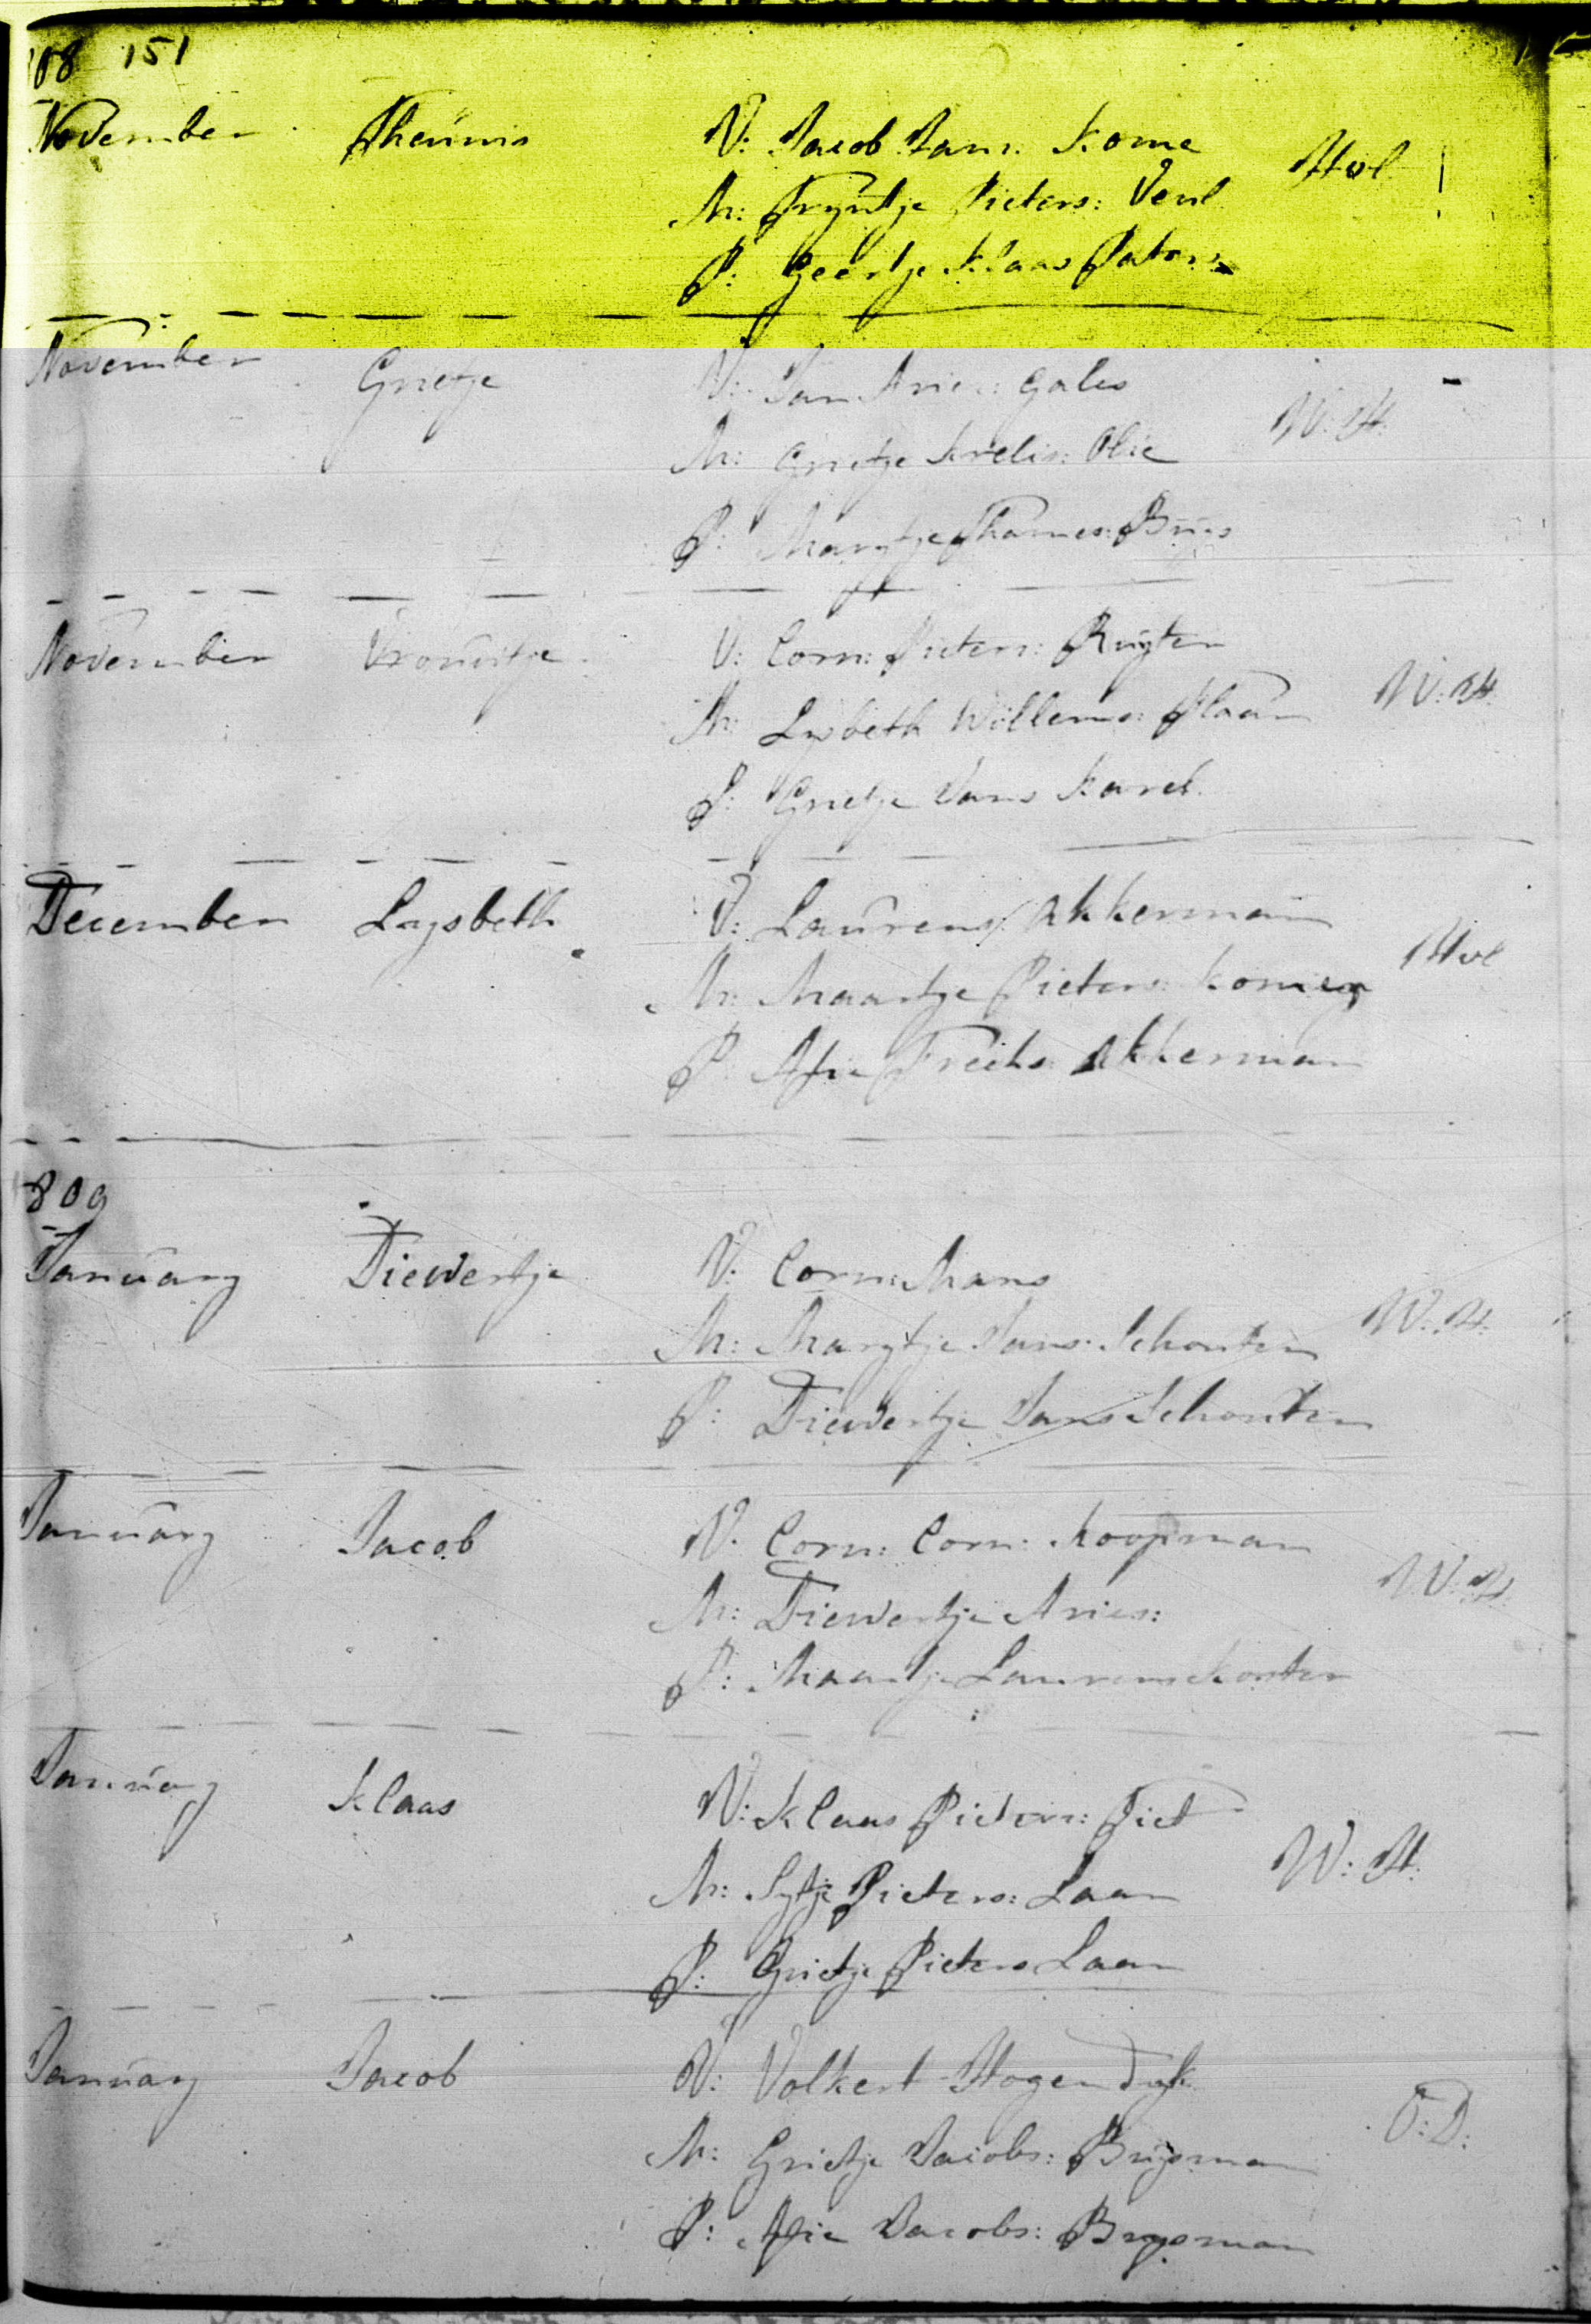 108 151
November Theunis V: Jacob Jans: Kome Hvl
M: Tryntje Pieters: Veul
P: Geertje Klaas Pater
November Grietje V: Jan Aries: Gales W:H:
M: Grietje Krelis: Olie
P: Marytje Thames: Buys
November Vrouwtje V: Corn: Pieters: Ruyter W:H:
M: Lysbeth Willems: Plaan
P: Grietje Jans Karel
December Lysbeth V: Laurens Akkerman Hvl
M: Maartje Pieters: Koning
P: Afie Freeks Akkerman
809
January Diewertje V: Corn: Mans W:H:
M: Marytje Jans: Schouten
P: Diewertje Jans Schouten
January Jacob V: Corn: Corn: Koopman W:H:
M: Diewertje Aries:
P: Maartje Laurens Koster
January Klaas V: Klaas Pieters: Piet W:H:
M: Sytje Pieters: Laan
P: Grietje Pieters Laan
January Jacob V: Volkert Hogendyk O:D:
M: Grietje Jacobs: Buysman
P: Afie Jacobs: Buysman